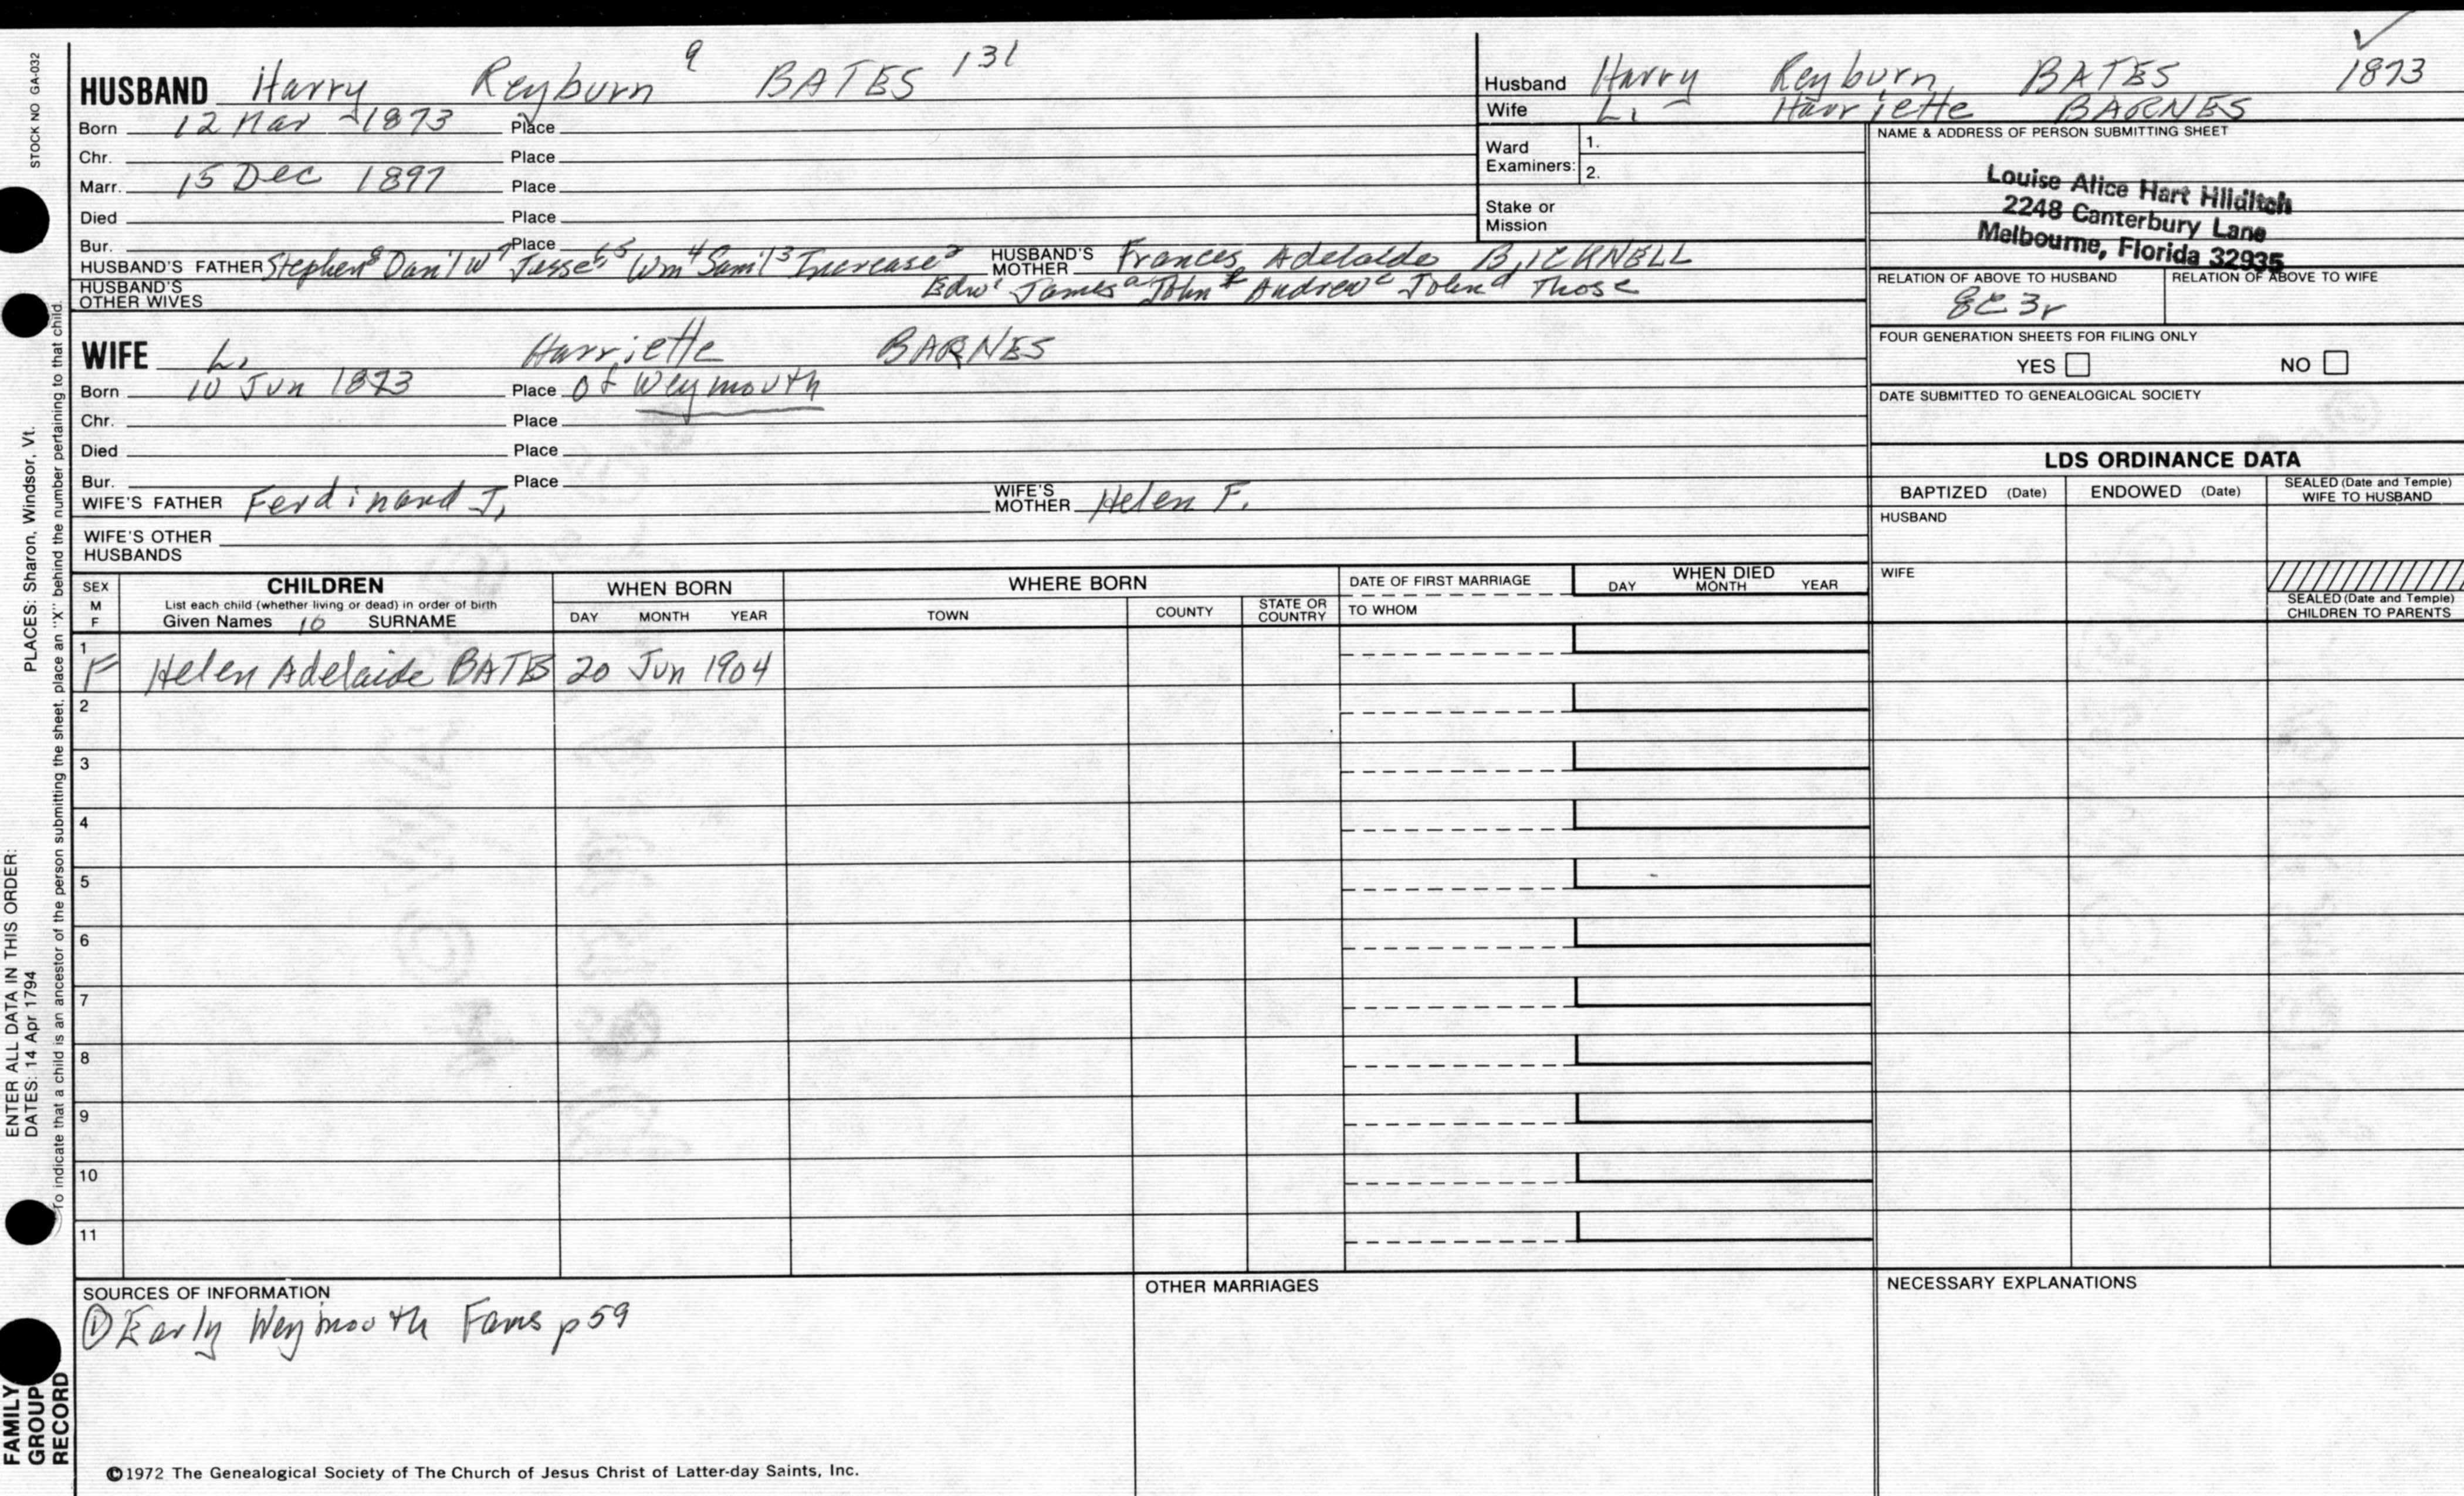 STOCK NO GA-032
HUSBAND Harry Reyburn 9 BATES 131
Born 12 Mar 1873 Place
Chr. Place
Marr. 15 Dec 1897 Place
Died Place
Bur. Place
HUSBAND'S FATHER Stephen 8 Dan'l W 7 Jesse 6 5 Wm 4 Sam'l 3 Increase 2 HUSBAND'S MOTHER Frances Adelaide BICKNELL
HUSBAND'S OTHER WIVES James John Andrew John
WIFE L. Harriette BARNES
Born 10 Jun 1873 Place of Weymouth
Chr. Place
Died Place
Bur. Place
WIFE'S FATHER Ferdinand J. WIFE'S MOTHER Helen F.
WIFE'S OTHER HUSBANDS
Husband Harry Reyburn BATES 1873
Wife L. Harriette BARNES
Ward Examiners: 1.
2.
Stake or Mission
NAME & ADDRESS OF PERSON SUBMITTING SHEET
Louise Alice Hart Hilditch
2248 Canterbury Lane
Melbourne, Florida 32935
RELATION OF ABOVE TO HUSBAND RELATION OF ABOVE TO WIFE
8C 3r
FOUR GENERATION SHEETS FOR FILING ONLY
YES NO
DATE SUBMITTED TO GENEALOGICAL SOCIETY
LDS ORDINANCE DATA
BAPTIZED (Date) ENDOWED (Date) SEALED (Date and Temple) WIFE TO HUSBAND
HUSBAND
WIFE
SEALED (Date and Temple) CHILDREN TO PARENTS
SEX M F
CHILDREN
List each child (whether living or dead) in order of birth
Given Names 10 SURNAME
WHEN BORN
DAY MONTH YEAR
WHERE BORN
TOWN COUNTY STATE OR COUNTRY
DATE OF FIRST MARRIAGE
TO WHOM
WHEN DIED
DAY MONTH YEAR
1
F Helen Adelaide BATES 20 Jun 1904
2
3
4
5
6
7
8
9
10
11
SOURCES OF INFORMATION
① Early Weymouth Fams p 59
OTHER MARRIAGES
NECESSARY EXPLANATIONS
©1972 The Genealogical Society of The Church of Jesus Christ of Latter-day Saints, Inc.
ENTER ALL DATA IN THIS ORDER:
DATES: 14 Apr 1794 PLACES: Sharon, Windsor, Vt.
To indicate that a child is an ancestor of the person submitting the sheet, place an "X" behind the number pertaining to that child.
FAMILY GROUP RECORD